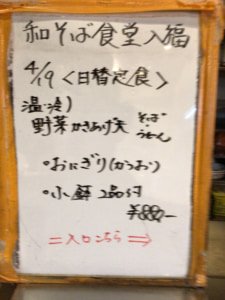 和そば食堂入福
4/19〈日替定食〉
温・冷)
野菜かきあげ天 そば・うどん
・おにぎり(かつお)
・小鉢 2品付
¥880-
＝入口こちら⇒